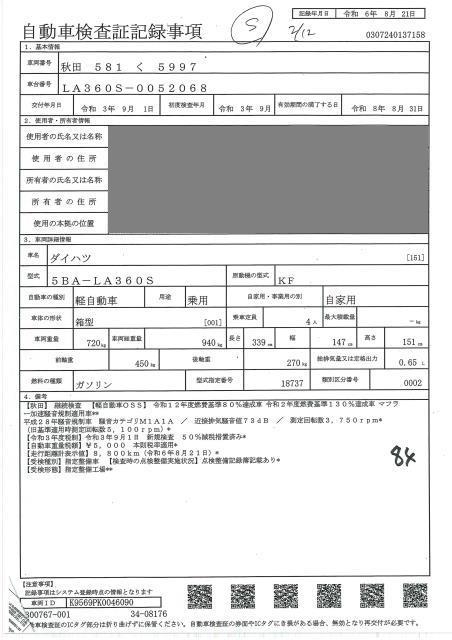 記録年月日 令和 6年 8月 21日
自動車検査証記録事項
S
2/12
0307240137158
1．基本情報
車両番号 秋田 581 く 5997
車台番号 LA360S-0052068
交付年月日 令和 3年 9月 1日 初度検査年月 令和 3年 9月 有効期間の満了する日 令和 8年 8月 31日
2．使用者・所有者情報
使用者の氏名又は名称
使用者の住所
所有者の氏名又は名称
所有者の住所
使用の本拠の位置
3．車両詳細情報
車名 ダイハツ [151]
型式 5BA-LA360S 原動機の型式 KF
自動車の種別 軽自動車 用途 乗用 自家用・事業用の別 自家用
車体の形状 箱型 [001] 乗車定員 4人 最大積載量 -kg
車両重量 720kg 車両総重量 940kg 長さ 339cm 幅 147cm 高さ 151cm
前軸重 450kg 後軸重 270kg 総排気量又は定格出力 0.65 L
燃料の種類 ガソリン 型式指定番号 18737 類別区分番号 0002
4．備考
【秋田】 継続検査 【軽自動車OSS】 令和12年度燃費基準80%達成車 令和2年度燃費基準130%達成車 マフラ
ー加速騒音規制適用車**
平成28年騒音規制車 騒音カテゴリM1A1A ／ 近接排気騒音値73dB ／ 測定回転数3,750rpm*
(旧基準適用時測定回転数5,100rpm)*
【令和3年度税制】令和3年9月1日 新規検査 50%減税措置済み*
【自動車重量税額】¥5,000 本則税率適用*
【走行距離計表示値】8,800km（令和6年8月21日）*
【受検種別】指定整備車 【検査時の点検整備実施状況】点検整備記録簿記載あり*
【受検形態】指定整備工場**
84
【注意事項】
記録事項はシステム登録時点の情報となります
車両ID K9569PK0046090
800767-001 34-08176
自動車検査証のICタグ部分は折り曲げずに保管ください。自動車検査証の券面やICタグにき損がある場合、無効となり再交付が必要です。